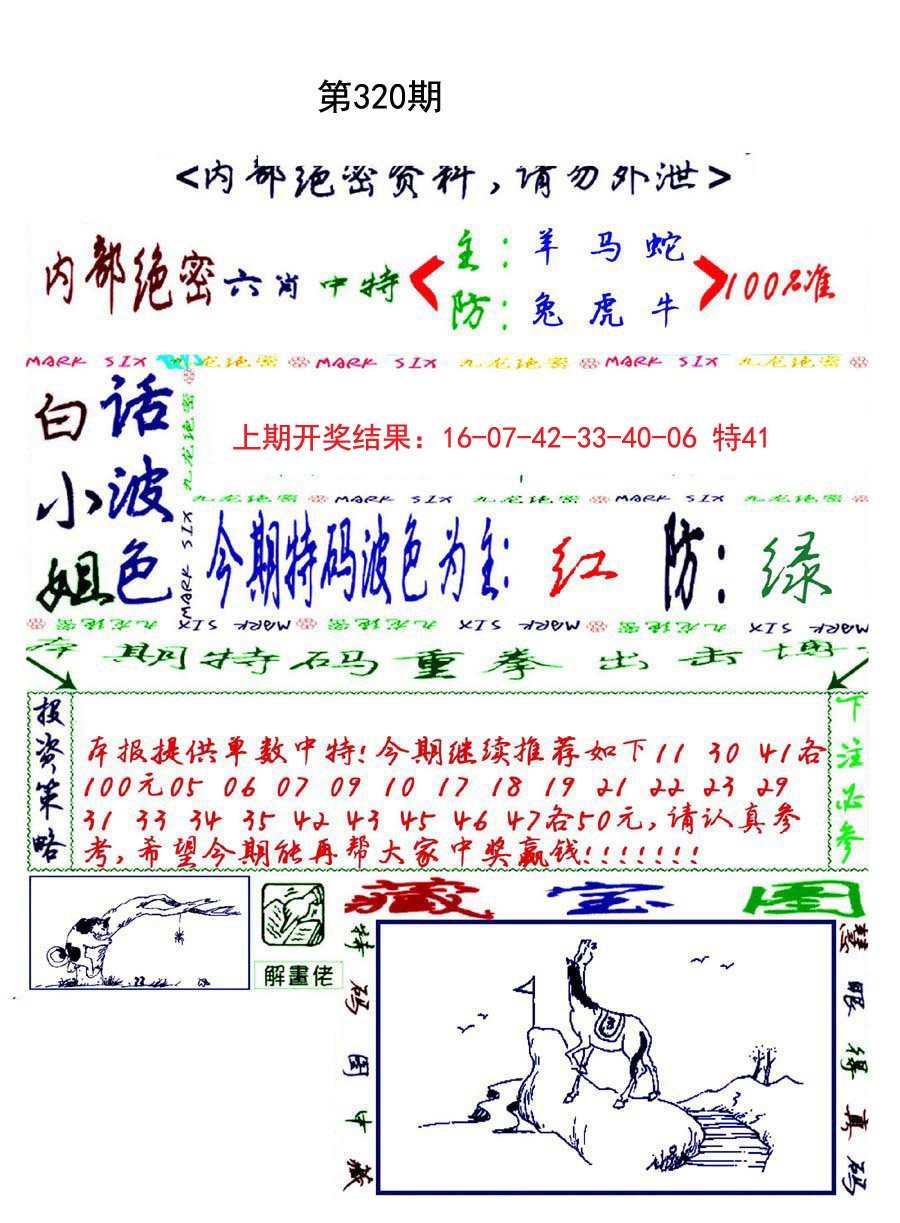 第320期
<内部绝密资料,请勿外泄>
内部绝密六肖中特
主:羊马蛇
防:兔虎牛
100%准
MARK SIX 九龙绝密 MARK SIX 九龙绝密 MARK SIX 九龙绝密
白小姐
话波色
九龙绝密
MARK SIX
上期开奖结果：16-07-42-33-40-06 特41
九龙绝密 MARK SIX 九龙绝密 MARK SIX 九龙绝密
今期特码波色为主:红 防:绿
九龙绝密 MARK SIX 九龙绝密 MARK SIX 九龙绝密 MARK SIX
本期特码重拳出击博
投资策略
本报提供单数中特!今期继续推荐如下11 30 41各
100元05 06 07 09 10 17 18 19 21 22 23 29
31 33 34 35 42 43 45 46 47各50元,请认真参
考,希望今期能再帮大家中奖赢钱!!!!!!!
下注必参
解畫佬
藏宝图
特码图中藏
慧眼得真码